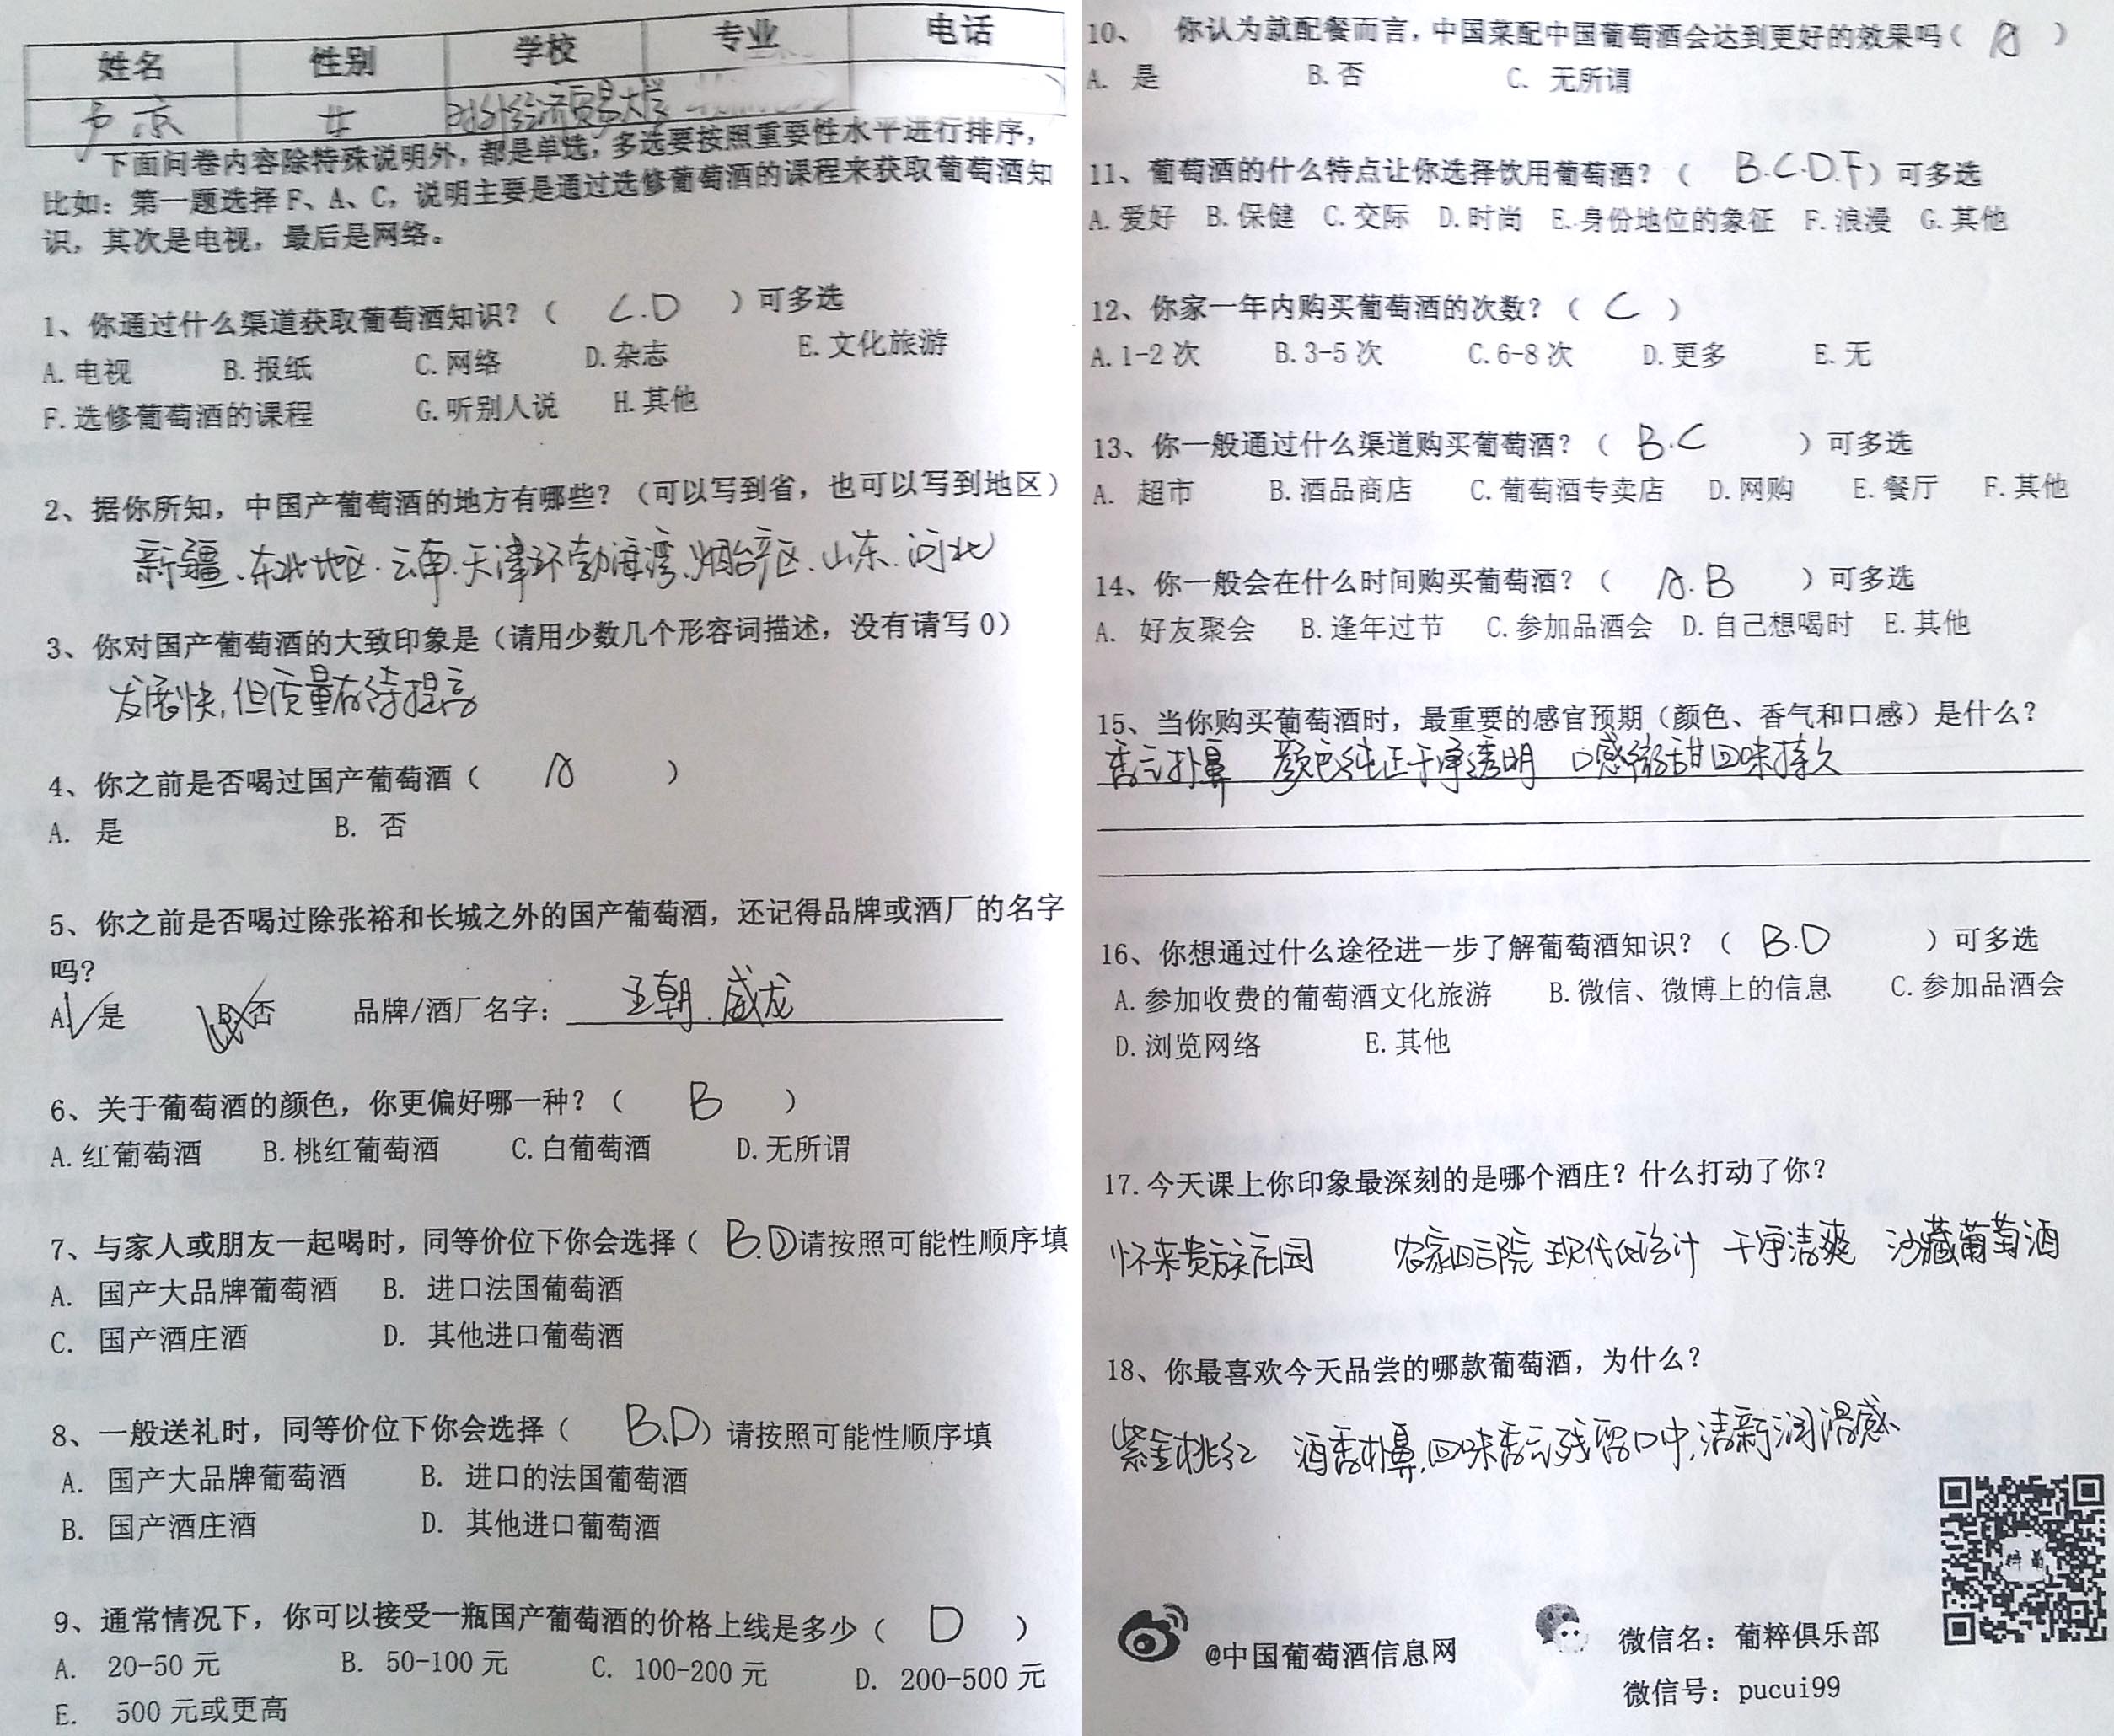 姓名 性别 学校 专业 电话
卢京 女 对外经济贸易大学
下面问卷内容除特殊说明外，都是单选，多选要按照重要性水平进行排序，
比如：第一题选择 F、A、C，说明主要是通过选修葡萄酒的课程来获取葡萄酒知
识，其次是电视，最后是网络。
1、你通过什么渠道获取葡萄酒知识？（ C.D ）可多选
A.电视 B.报纸 C.网络 D.杂志 E.文化旅游
F.选修葡萄酒的课程 G.听别人说 H.其他
2、据你所知，中国产葡萄酒的地方有哪些？（可以写到省，也可以写到地区）
新疆、东北地区.云南.天津环勃海湾、烟台产区.山东.河北
3、你对国产葡萄酒的大致印象是（请用少数几个形容词描述，没有请写 0）
发展快，但质量有待提高
4、你之前是否喝过国产葡萄酒（ A ）
A. 是 B. 否
5、你之前是否喝过除张裕和长城之外的国产葡萄酒，还记得品牌或酒厂的名字
吗？
A√是 B.否 品牌/酒厂名字：王朝.威龙
6、关于葡萄酒的颜色，你更偏好哪一种？（ B ）
A.红葡萄酒 B.桃红葡萄酒 C.白葡萄酒 D.无所谓
7、与家人或朋友一起喝时，同等价位下你会选择（ B.D）请按照可能性顺序填
A. 国产大品牌葡萄酒 B. 进口法国葡萄酒
C. 国产酒庄酒 D. 其他进口葡萄酒
8、一般送礼时，同等价位下你会选择（ B.D）请按照可能性顺序填
A. 国产大品牌葡萄酒 B. 进口的法国葡萄酒
B. 国产酒庄酒 D. 其他进口葡萄酒
9、通常情况下，你可以接受一瓶国产葡萄酒的价格上线是多少（ D ）
A. 20-50 元 B. 50-100 元 C. 100-200 元 D. 200-500 元
E. 500 元或更高
10、 你认为就配餐而言，中国菜配中国葡萄酒会达到更好的效果吗（ A ）
A. 是 B.否 C. 无所谓
11、葡萄酒的什么特点让你选择饮用葡萄酒？（ B.C.D.F）可多选
A.爱好 B.保健 C.交际 D.时尚 E.身份地位的象征 F.浪漫 G.其他
12、你家一年内购买葡萄酒的次数？（ C ）
A.1-2 次 B.3-5 次 C.6-8 次 D.更多 E.无
13、你一般通过什么渠道购买葡萄酒？（ B.C ）可多选
A. 超市 B.酒品商店 C.葡萄酒专卖店 D.网购 E.餐厅 F.其他
14、你一般会在什么时间购买葡萄酒？（ A.B ）可多选
A. 好友聚会 B.逢年过节 C.参加品酒会 D.自己想喝时 E.其他
15、当你购买葡萄酒时，最重要的感官预期（颜色、香气和口感）是什么？
香气扑鼻 颜色纯正干净透明 口感微甜回味持久
16、你想通过什么途径进一步了解葡萄酒知识？（ B.D ）可多选
A.参加收费的葡萄酒文化旅游 B.微信、微博上的信息 C.参加品酒会
D.浏览网络 E.其他
17.今天课上你印象最深刻的是哪个酒庄？什么打动了你？
怀来贵族庄园 农家四合院 现代化设计 干净清爽 沙藏葡萄酒
18、你最喜欢今天品尝的哪款葡萄酒，为什么？
紫金桃红 酒香扑鼻，回味香气残留口中，清新润滑感
@中国葡萄酒信息网
微信名：葡粹俱乐部
微信号：pucui99